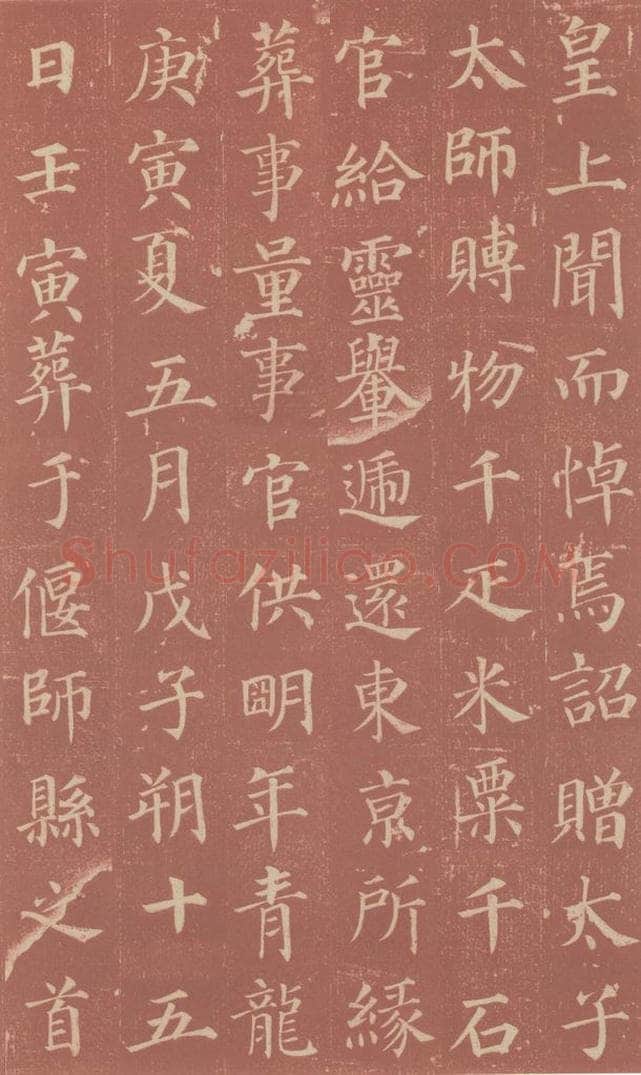 皇上聞而悼焉詔贈太子
太師賻物千疋米粟千石
官給靈轝遞還東京所緣
葬事量事官供明年青龍
庚寅夏五月戊子朔十五
日壬寅葬于偃師縣之首
Shufaziliao.COM